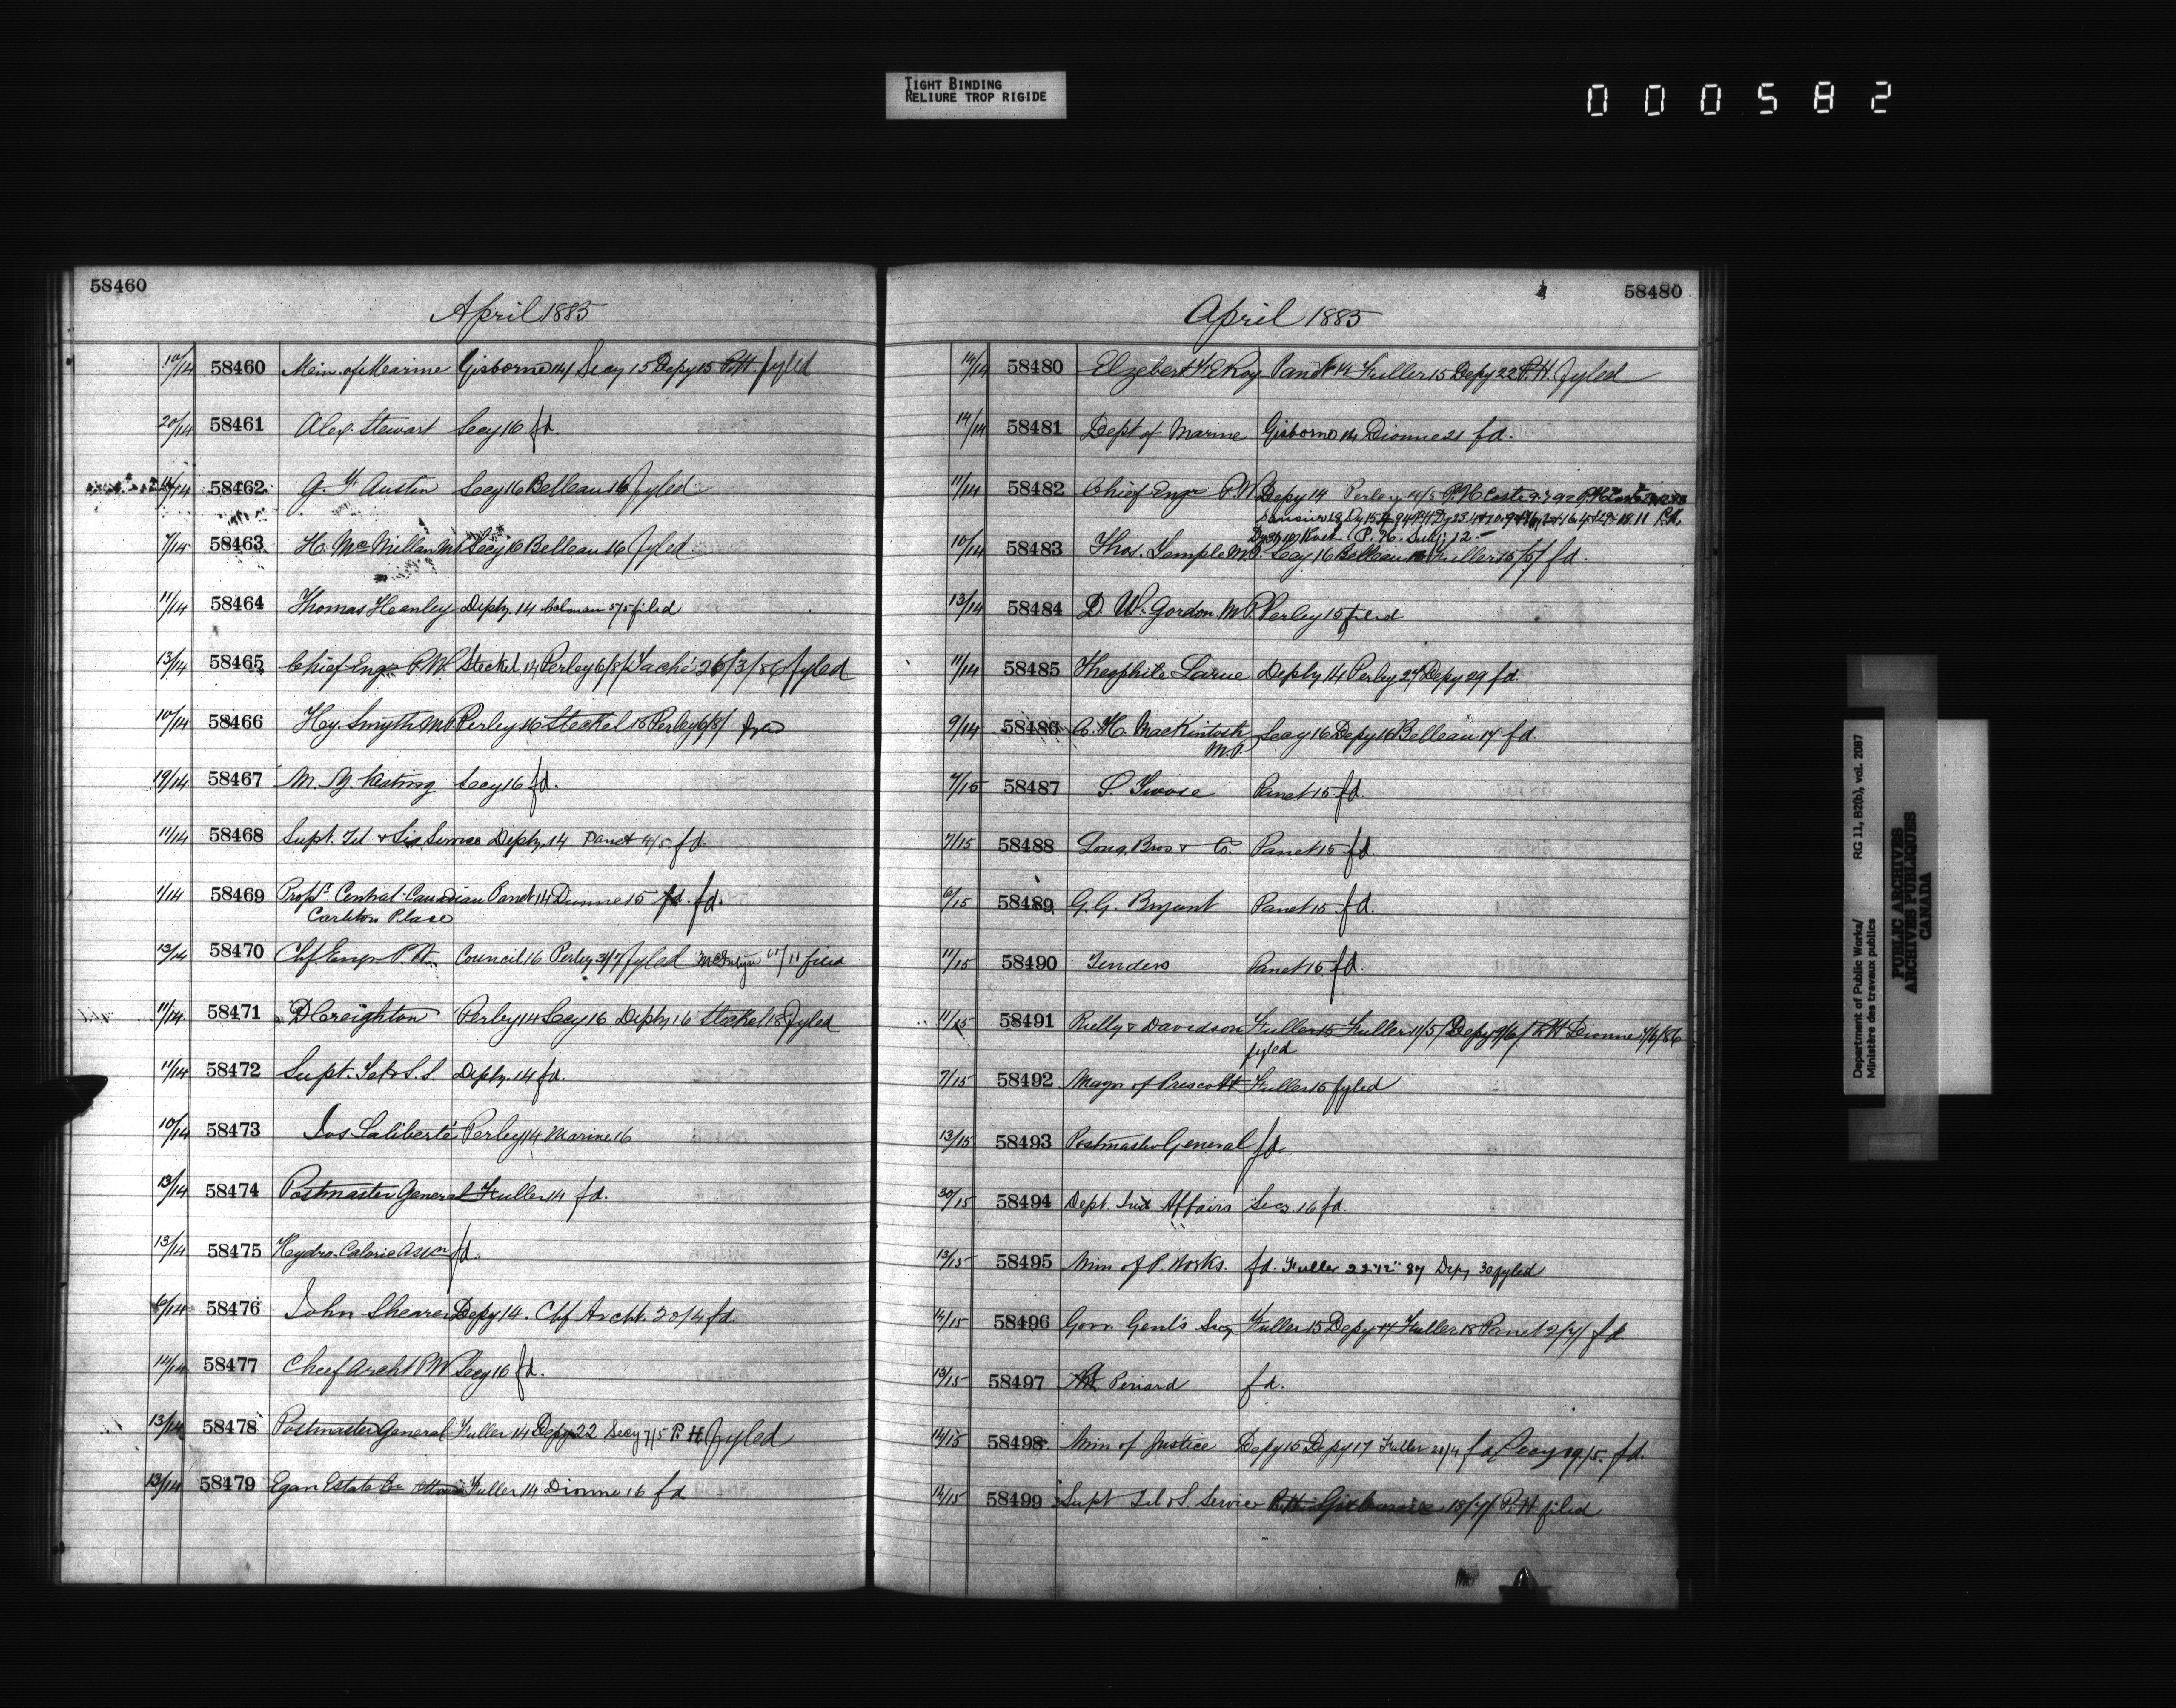 TIGHT BINDING
RELIURE TROP RIGIDE
000582
58460
April 1885
10/14 58460 Min. of Marine Gisborne 14 Secy 15 Depy 15 P.H. fyled
20/14 58461 Alex. Stewart Secy 16 fd.
58462 G. Y. Austin Secy 16 Belleau 16 fyled
7/14 58463 H. McMillan Secy 16 Belleau 16 fyled
11/14 58464 Thomas Heanley Depty. 14 Colman 5/5 filed
13/14 58465 Chief Engr P.W. Steckel 14 Perley 6/8/ Taché 26/3/86 fyled
10/14 58466 Hy. Smyth M.P. Perley 16 Steckel 18 Perley 6/8/ fyled
19/14 58467 M. Y. Keating Secy 16 fd.
11/14 58468 Supt. Tel & Sig Service Depty. 14 Panet 4/5 fd.
1/14 58469 Propr. Central Canadian Panet 14 Dionne 15 fd. fd.
Carleton Place
13/14 58470 Chf Engr P.W. Council 16 Perley 3/7 fyled McIntyre 11 filed
11/14 58471 D Creighton Perley 14 Secy 16 Depty 16 Steckel 18 fyled
11/14 58472 Supt. Tel & S. S. Depty. 14 fd.
10/14 58473 Jos Laliberté Perley 14 Marine 16
13/14 58474 Postmaster General Fuller 14 fd.
13/14 58475 Hydro-Caloric Assn fd.
58476 John Shearer Depy 14. Chf Archt. 20/4 fd.
14/14 58477 Chief Archt P.W. Secy 16 fd.
13/14 58478 Postmaster General Fuller 14 Depy 22 Secy 7/5 P. H fyled
13/14 58479 Egan Estate Fuller 14 Dionne 16 fd
58480
April 1885
14/14 58480 Elzebert Panet 14 Fuller 15 Depy 22 P.H. fyled
14/14 58481 Dept of Marine Gisborne 14 Dionne 21 fd.
11/14 58482 Chief Engr P.W. Depy 14 Perley 4/5 P.H. Coste
10/14 58483 Thos. Temple M.P. Secy 16 Belleau 16 Fuller 15/5/ fd.
13/14 58484 D. W. Gordon M P Perley 15 filed
11/14 58485 Theophile Larue Depty 14 Perley 27 Depy 29 fd.
9/14 58486 C. H. Mackintosh Secy 16 Depy 16 Belleau 17 fd.
M.P.
7/15 58487 S. Twose Panet 15 fd.
7/15 58488 Long Bros & Co. Panet 15 fd
6/15 58489 G. G. Bryant Panet 15 fd.
11/15 58490 Tenders Panet 15 fd.
11/15 58491 Rielly & Davidson Fuller 15 Fuller 11/5/ Depy 9/6/ P.H Dionne 7/6/86
fyled
7/15 58492 Mayor of Prescott Fuller 15 fyled
13/15 58493 Postmaster General fd.
30/15 58494 Dept. Ind Affairs Secy. 16 fd.
13/15 58495 Min of P. Works. fd. Fuller 22"12" 87 Depy 30 fyled
14/15 58496 Govr. Genl's Secy Fuller 15 Depy 17 Fuller 18 Panet 2/7/ fd
13/15 58497 Periard fd.
14/15 58498 Min of Justice Depy 15 Depy 17 Fuller 21/4 fd Secy 19/5. fd.
14/15 58499 Supt Tel & S. Service P.H. Gisborne 18/7/ P.H filed
Department of Public Works/
Ministère des travaux publics
RG 11, B2(b), vol. 2087
PUBLIC ARCHIVES
ARCHIVES PUBLIQUES
CANADA